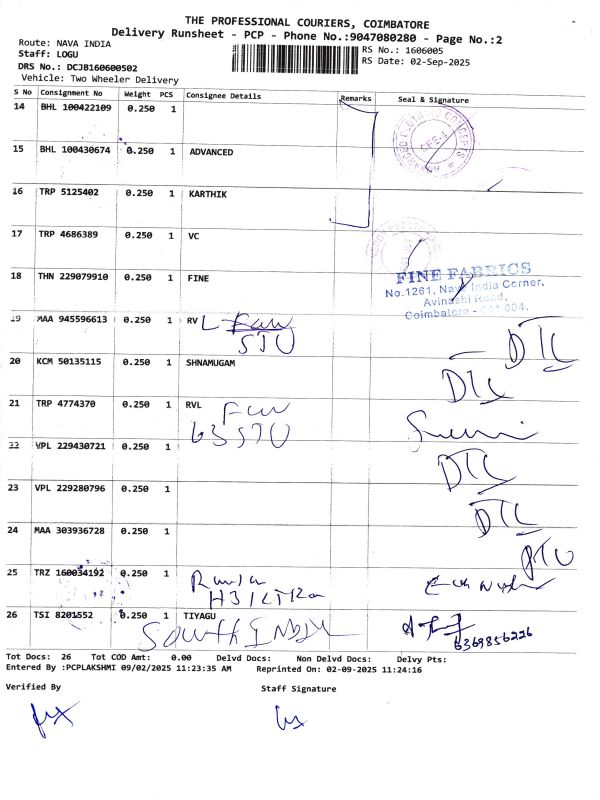 THE PROFESSIONAL COURIERS, COIMBATORE
Delivery Runsheet - PCP - Phone No.:9047080280 - Page No.:2
Route: NAVA INDIA
RS No.: 1606005
Staff: LOGU
RS Date: 02-Sep-2025
DRS No.: DCJB160600502
Vehicle: Two Wheeler Delivery
S No Consignment No Weight PCS Consignee Details Remarks Seal & Signature
14 BHL 100422109 0.250 1
15 BHL 100430674 0.250 1 ADVANCED
16 TRP 5125402 0.250 1 KARTHIK
17 TRP 4686389 0.250 1 VC
18 THN 229079910 0.250 1 FINE
FINE FABRICS
No.1261, Nava India Corner,
Avinashi Road,
Coimbatore - 641 004.
19 MAA 945596613 0.250 1 RVL
STU
DTL
20 KCM 50135115 0.250 1 SHNAMUGAM
DTL
21 TRP 4774370 0.250 1 RVL
63 STU
22 VPL 229430721 0.250 1
DTL
23 VPL 229280796 0.250 1
DTL
24 MAA 303936728 0.250 1
25 TRZ 160034192 0.250 1
26 TSI 8201552 0.250 1 TIYAGU
South India
6369856226
Tot Docs: 26 Tot COD Amt: 0.00 Delvd Docs: Non Delvd Docs: Delvy Pts:
Entered By :PCPLAKSHMI 09/02/2025 11:23:35 AM Reprinted On: 02-09-2025 11:24:16
Verified By Staff Signature